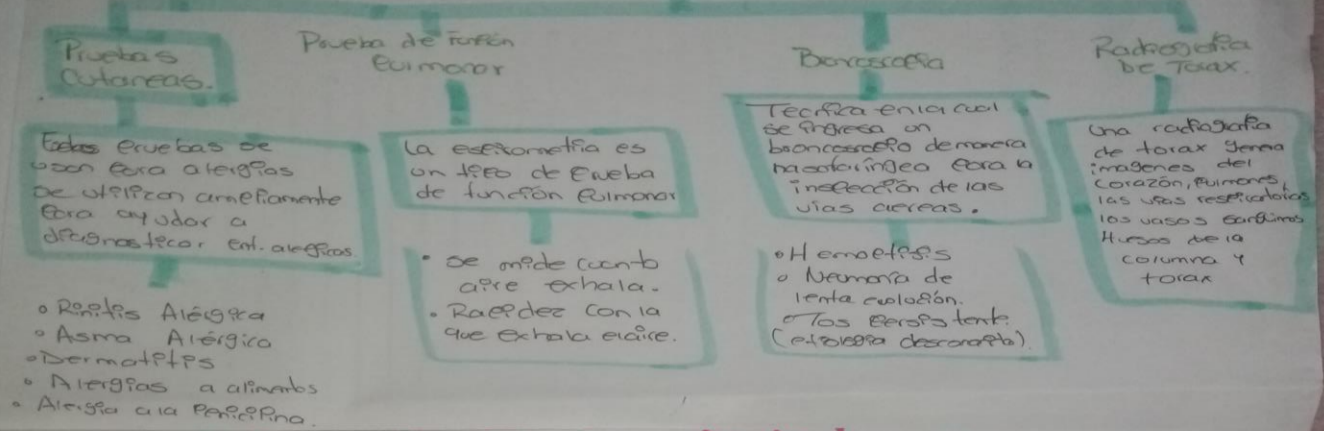 Pruebas
Cutaneas.
Estas pruebas se
usan para alergias
se utilizan ampliamente
para ayudar a
diagnosticar enf. alergicas.
• Rinitis Alérgica
• Asma Alérgico
• Dermatitis
• Alergias a alimentos
• Alergia a la Penicilina.
Prueba de Función
Pulmonar
La espirometria es
un tipo de Prueba
de función pulmonar
• se mide cuanto
aire exhala.
• Rapidez con la
que exhala el aire.
Broncoscopia
Tecnica en la cual
se ingresa un
broncoscopio de manera
nasofaringea para la
inspección de las
vias aereas.
• Hemoptisis
• Neumonía de
lenta evolución.
• Tos persistente
(etiologia desconocida).
Radiografia
De Torax.
Una radiografia
de torax genera
imagenes del
corazón, pulmones,
las vias respiratorias
los vasos sanguineos
Huesos de la
columna y
torax